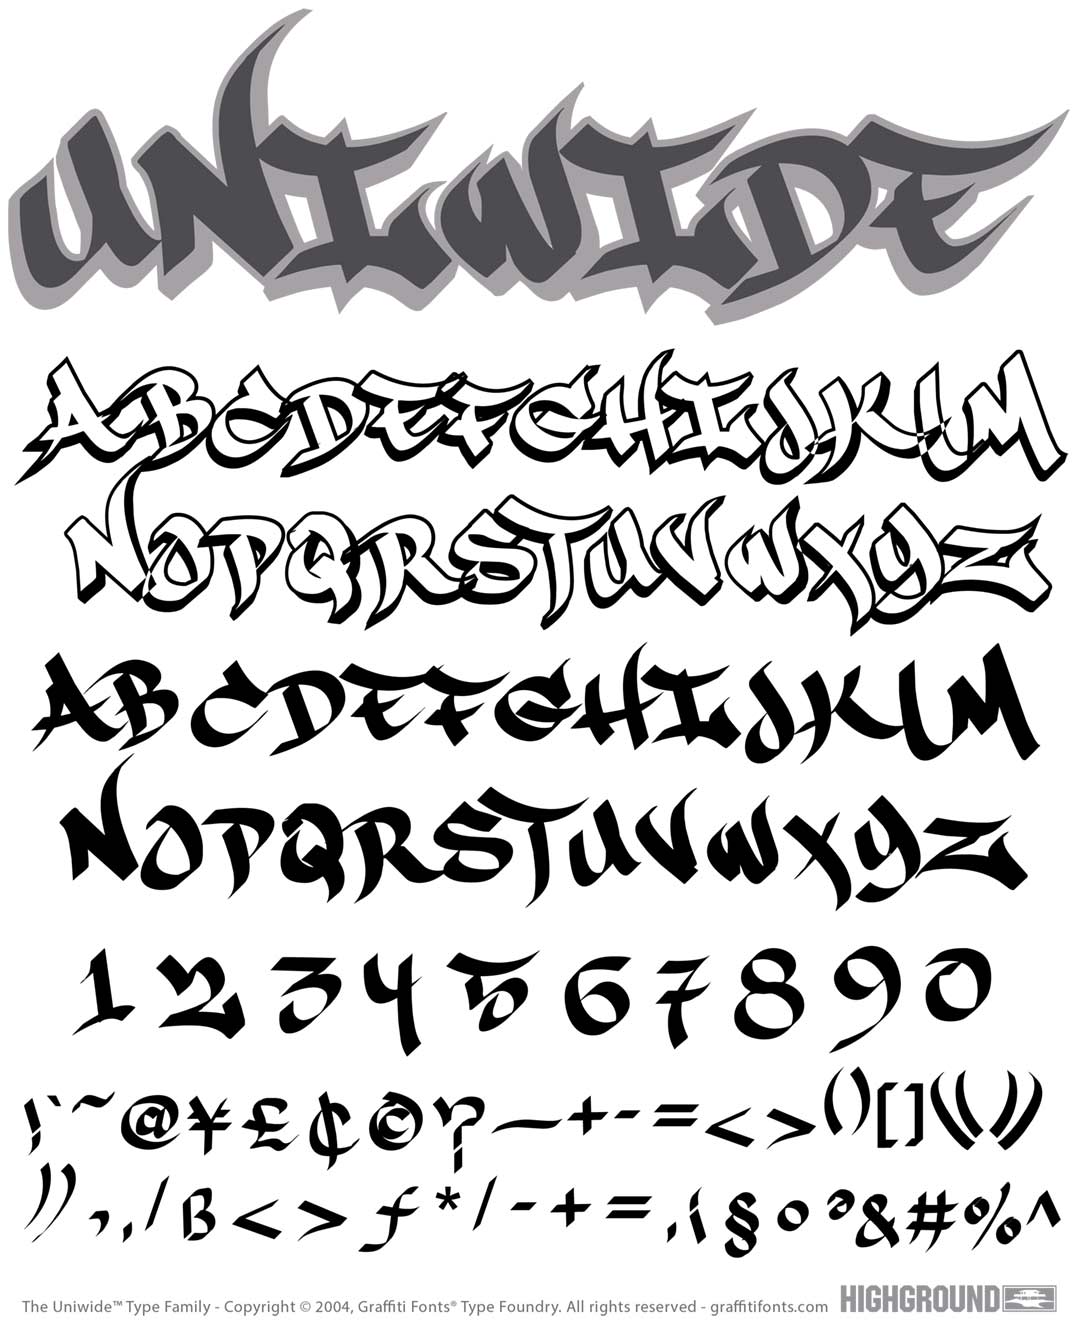 UNIWIDE
ABCDEFGHIJKLM
NOPQRSTUVWXYZ
ABCDEFGHIJKLM
NOPQRSTUVWXYZ
1234567890
!`~@¥£¢©?—+-=<>()[]{}
”,./ß<>ƒ*/-+=.¡§°ª&#%^
The Uniwide™ Type Family - Copyright © 2004, Graffiti Fonts® Type Foundry. All rights reserved - graffitifonts.com HIGHGROUND